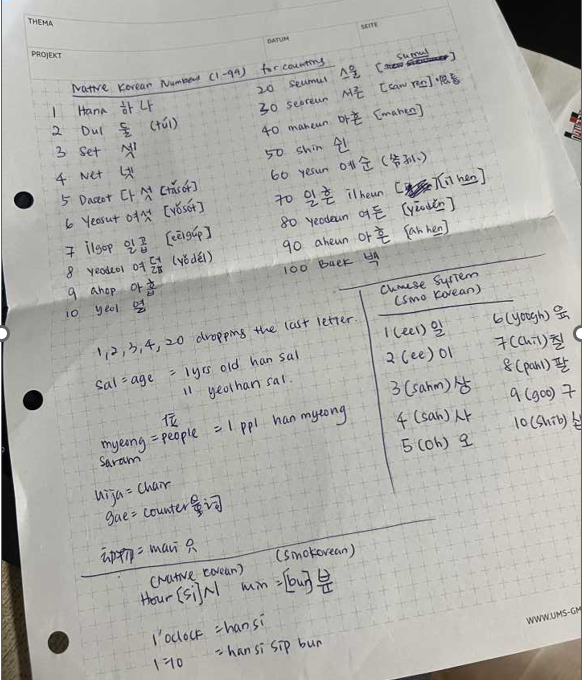 THEMA
DATUM
SEITE
PROJEKT
Native Korean Numbers (1-99) for counting
1 Hana 하나
2 Dul 둘 (túl)
3 Set 셋
4 Net 넷
5 Daseot 다섯 [tásót]
6 Yeosut 여섯 [yósót]
7 ilgop 일곱 [eēlgúp]
8 yeodeol 여덟 (yŏdél)
9 ahop 아홉
10 yeol 열
sumul
20 seumul 스물
30 seoreun 서른
40 maheun 마흔 [mahen]
50 shin 쉰
60 yesun 예순
70 일흔 ilheun [il hen]
80 yeodeun 여든 [yēodén]
90 aheun 아흔 [ah hen]
100 Baek 백
1,2,3,4,20 dropping the last letter.
sal = age = 1 yrs old han sal
11 yeolhan sal.
位
myeong = people = 1 ppl han myeong
saram
uija = chair
gae = counter 量词
动物 = mari
Chinese System
(Sino Korean)
1 (eel) 일
2 (ee) 이
3 (sahm) 삼
4 (sah) 사
5 (oh) 오
6 (yoogh) 육
7 (chil) 칠
8 (pahl) 팔
9 (goo) 구
10 (shib)
(Native Korean) (sinokorean)
Hour [si] 시 min = [bun] 분
1'oclock = han si
1:10 = han si sip bun
WWW.UMS-GM